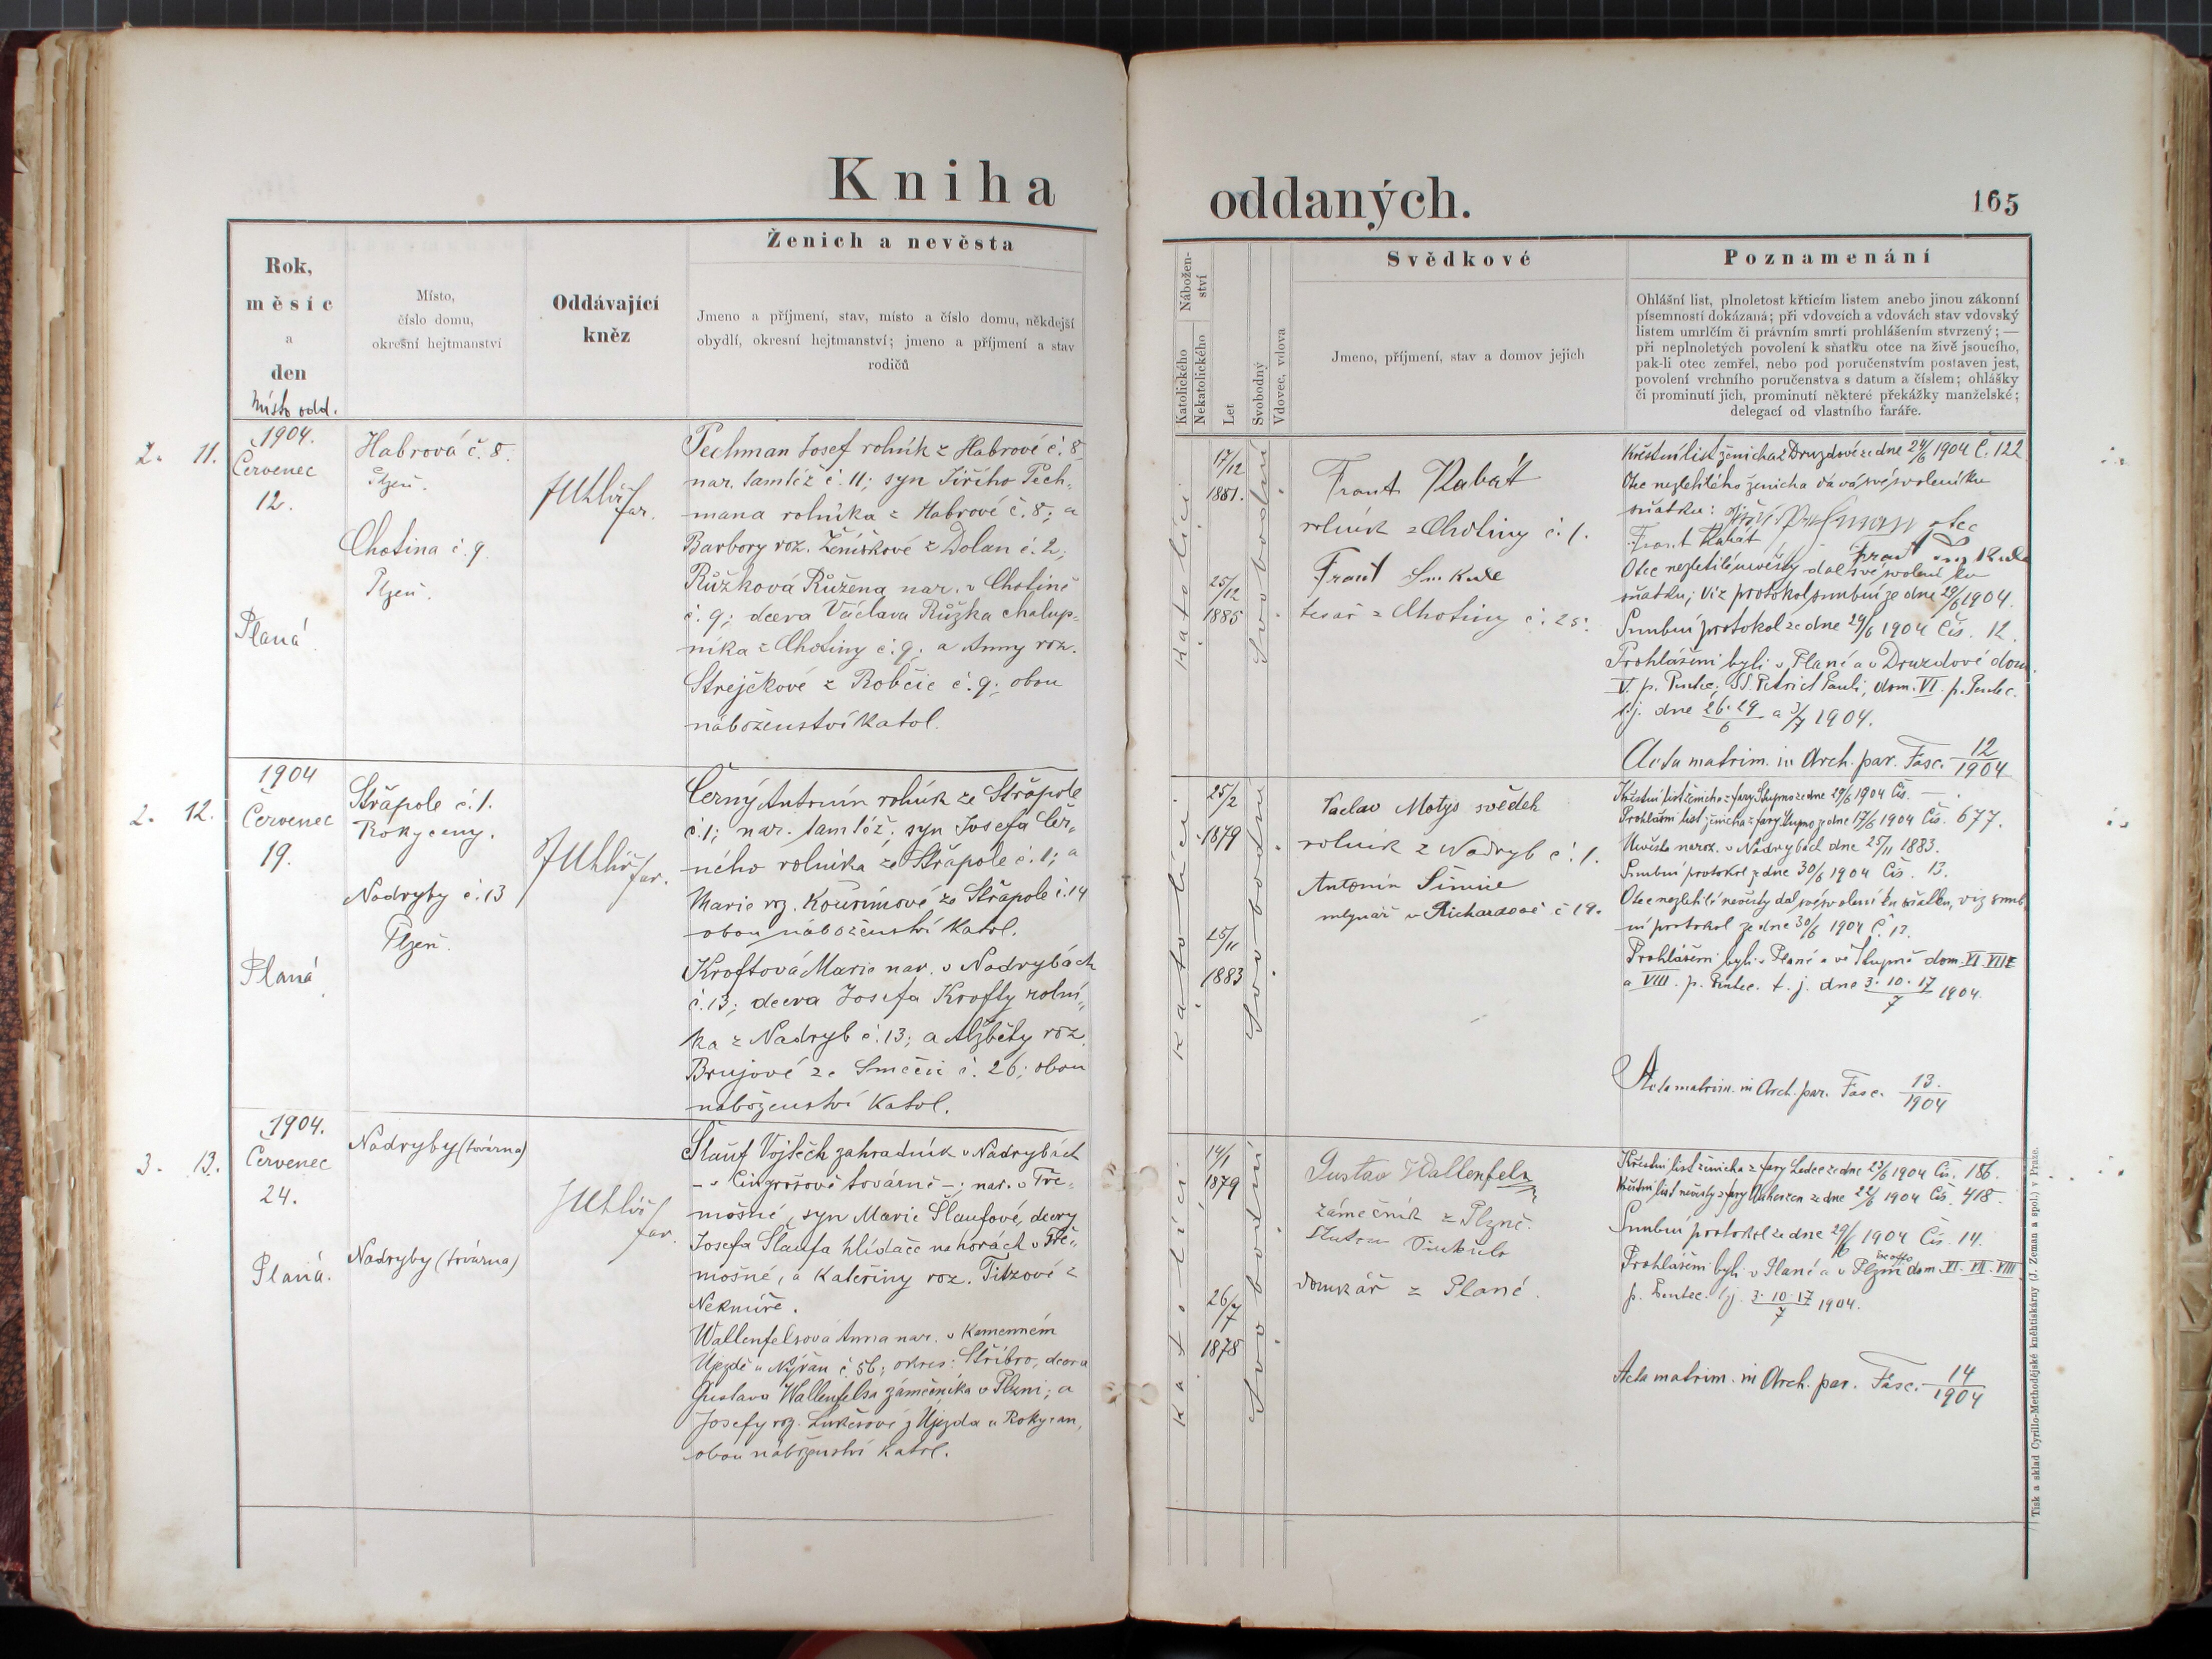 Kniha
oddaných.
165
Rok,
měsíc
a
den
Místo odd.
Místo,
číslo domu,
okresní hejtmanství
Oddávající
kněz
Ženich a nevěsta
Jmeno a příjmení, stav, místo a číslo domu, někdejší
obydlí, okresní hejtmanství; jmeno a příjmení a stav
rodičů
Nábožen-
ství
Katolického
Nekatolického
Let
Svobodný
Vdovec, vdova
Svědkové
Jmeno, příjmení, stav a domov jejich
Poznamenání
Ohlášní list, plnoletost křticím listem anebo jinou zákonní
písemností dokázaná; při vdovcích a vdovách stav vdovský
listem umrlčím či právním smrti prohlášením stvrzený; —
při neplnoletých povolení k sňatku otce na živě jsoucího,
pak-li otec zemřel, nebo pod poručenstvím postaven jest,
povolení vrchního poručenstva s datum a číslem; ohlášky
či prominutí jich, prominutí některé překážky manželské;
delegací od vlastního faráře.
2. 11.
1904.
Červenec
12.
Planá
Habrová č. 8.
Plzeň.
Chotina č. 9.
Plzeň.
JUhlíř
far.
Pechman Josef rolník z Habrové č. 8,
nar. tamtéž č. 11; syn Jiřího Pech-
mana rolníka z Habrové č. 8; a
Barbory roz. Ženíškové z Dolan č. 2;
Růžková Růžena nar. v Chotině
č. 9; dcera Václava Růžka chalup-
níka z Chotiny č. 9; a Anny roz.
Strejčkové z Robčic č. 9; obou
náboženství katol.
Katolíci
17/12
1881.
25/12
1885
Svobodní
Frant. Rabát
rolník z Chotiny č. 1.
Frant Smkule
tesař z Chotiny č. 25.
Křestní list ženicha z Druzdové ze dne 24/6 1904 Č. 122
Otec nezletilého ženicha dává své svolení ku
sňatku: otec
Frant Rabát
Otec nezletilé nevěsty dal své svolení ku
sňatku; viz protokol snubní ze dne 29/6 1904.
Snubní protokol ze dne 29/6 1904 Čís. 12.
Prohlášeni byli v Plané a v Druzdové dom.
V. p. Pentec; SS. Petri et Pauli, dom. VI. p. Pentec.
t.j. dne 26. 29/6 a 3/7 1904.
Acta matrim. in Arch. par. Fasc. 12/1904
2. 12.
1904
Červenec
19.
Planá
Střapole č. 1.
Rokycany.
Nadryby č. 13
Plzeň.
JUhlíř
far.
Černý Antonín rolník ze Střapole
č. 1; nar. tamtéž; syn Josefa Čer-
ného rolníka ze Střapole č. 1; a
Marie roz. Kouřimové ze Střapole č. 14
obou náboženství katol.
Kroftová Marie nar. v Nadrybách
č. 13; dcera Josefa Krofty rolní-
ka z Nadryb č. 13; a Alžběty roz.
Brujové ze Smědčic č. 26; obou
náboženství katol.
Katolíci
25/2
1879
25/11
1883
Svobodní
Václav Motys svědek
rolník z Nadryb č. 1.
Antonín Šimice
mlynář v Richardově č 19.
Křestní list ženicha z fary Stupno ze dne 29/6 1904 Čís. —.
Prohlášní list ženicha z fary Stupno ze dne 17/7 1904 Čís. 677.
Nevěsta naroz. v Nadrybách dne 25/11 1883.
Snubní protokol ze dne 30/6 1904 Čís. 13.
Otec nezletilé nevěsty dal své svolení ku sňatku, viz snub-
ní protokol ze dne 30/6 1904 Č. 13.
Prohlášeni byli v Plané a ve Stupně dom. VI. VII.
a VIII. p. Pentec. t. j. dne 3. 10. 17/7 1904.
Acta matrim. in Arch. par. Fasc. 13./1904
3. 13.
1904.
Červenec
24.
Planá.
Nadryby (továrna)
Nadryby (továrna)
JUhlíř
far.
Šlauf Vojtěch zahradník v Nadrybách
– v Cingrošově továrně –; nar. v Tře-
mošné, syn Marie Šlaufové, dcery
Josefa Šlaufa hlídače na horách v Tře-
mošné, a Kateřiny roz. Titzové z
Nekmíře.
Wallenfelsova Anna nar. v Kamenném
Újezdě u Nýřan č 56; okres: Stříbro, dcera
Gustava Wallenfelsa zámečníka v Plzni; a
Josefy roz. Lukešové z Újezda u Rokycan,
obou náboženství katol.
Katolíci
14/1
1879
26/7
1878
Svobodní
Gustav Wallenfels
zámečník z Plzně.
domkář z Plané.
Křestní list ženicha z fary Ledce ze dne 23/6 1904 Čís. 186.
Křestní list nevěsty z fary ze dne 22/6 1904 Čís. 418.
Snubní protokol ze dne 29/6 1904 Čís 14.
Prohlášeni byli v Plané a v Plzni dom. VI. VII. VIII
p. Pentec. t.j. 3. 10. 17/7 1904.
Acta matrim. in Arch. par. Fasc. 14/1904
Tisk a sklad Cyrillo-Methodějské knihtiskárny (J. Zeman a spol.) v Praze.